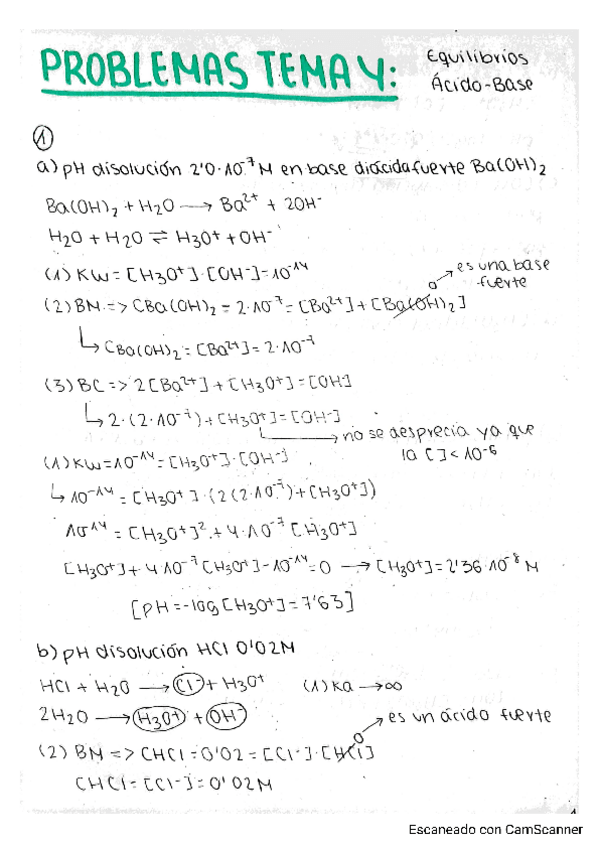 PROBLEMAS TEMA 4:
Equilibrios
Ácido-Base
①
a) pH disolución 2'0·10⁻⁷ M en base diácida fuerte Ba(OH)₂
Ba(OH)₂ + H₂O → Ba²⁺ + 2OH⁻
H₂O + H₂O ⇌ H₃O⁺ + OH⁻
(1) KW = [H₃O⁺]·[OH⁻] = 10⁻¹⁴
→ es una base
fuerte
(2) BM => CBa(OH)₂ = 2·10⁻⁷ = [Ba²⁺] + [Ba(OH)₂] 0
↳ CBa(OH)₂ = [Ba²⁺] = 2·10⁻⁷
(3) BC => 2[Ba²⁺] + [H₃O⁺] = [OH⁻]
↳ 2·(2·10⁻⁷) + [H₃O⁺] = [OH⁻]
→ no se desprecia ya que
la [ ] < 10⁻⁶
(1) KW = 10⁻¹⁴ = [H₃O⁺]·[OH⁻]
↳ 10⁻¹⁴ = [H₃O⁺]·(2(2·10⁻⁷) + [H₃O⁺])
10⁻¹⁴ = [H₃O⁺]² + 4·10⁻⁷ [H₃O⁺]
[H₃O⁺] + 4·10⁻⁷ [H₃O⁺] - 10⁻¹⁴ = 0 → [H₃O⁺] = 2'36·10⁻⁸ M
[pH = -log [H₃O⁺] = 7'63]
b) pH disolución HCl 0'02M
HCl + H₂O → Cl⁻ + H₃O⁺ (1) Ka → ∞
2H₂O → H₃O⁺ + OH⁻
→ es un ácido fuerte
(2) BM => CHCl = 0'02 = [Cl⁻]·[HCl] 0
CHCl = [Cl⁻] = 0'02M
1
Escaneado con CamScanner